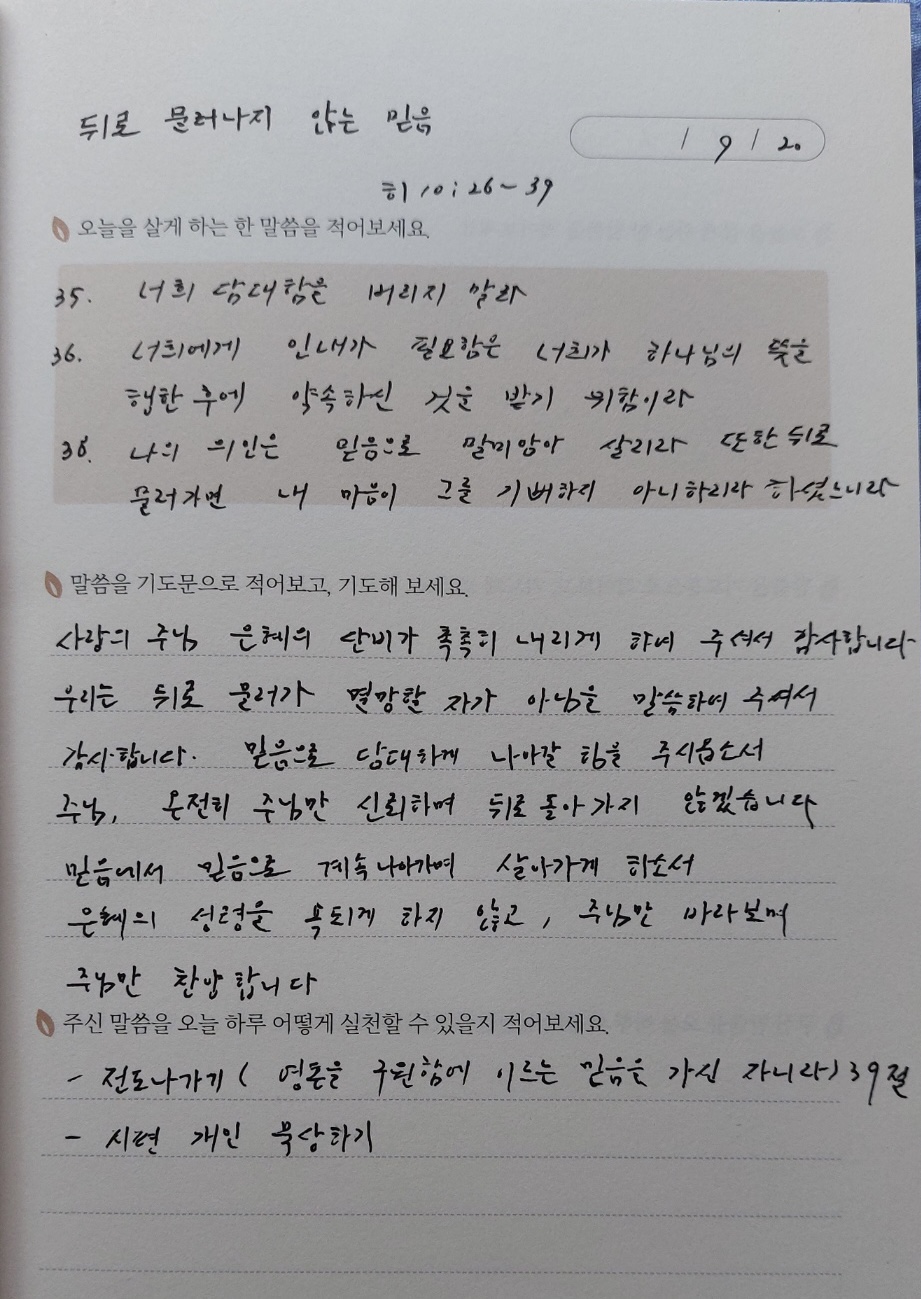 뒤로 물러나지 않는 믿음
/ 9 / 20
히 10 : 26 ~ 39
오늘을 살게 하는 한 말씀을 적어보세요.
35. 너희 담대함을 버리지 말라
36. 너희에게 인내가 필요함은 너희가 하나님의 뜻을
행한 후에 약속하신 것을 받기 위함이라
38. 나의 의인은 믿음으로 말미암아 살리라 또한 뒤로
물러가면 내 마음이 그를 기뻐하지 아니하리라 하셨느니라
말씀을 기도문으로 적어보고, 기도해 보세요.
사랑의 주님 은혜의 단비가 촉촉히 내리게 하여 주셔서 감사합니다
우리는 뒤로 물러가 멸망할 자가 아님을 말씀하여 주셔서
감사합니다. 믿음으로 담대하게 나아갈 힘을 주시옵소서
주님, 온전히 주님만 신뢰하며 뒤로 돌아가지 않겠습니다
믿음에서 믿음으로 계속 나아가며 살아가게 하소서
은혜의 성령을 욕되게 하지 않고, 주님만 바라보며
주님만 찬양합니다
주신 말씀을 오늘 하루 어떻게 실천할 수 있을지 적어보세요.
- 전도나가기 ( 영혼을 구원함에 이르는 믿음을 가진 자니라) 39절
- 시편 개인 묵상하기